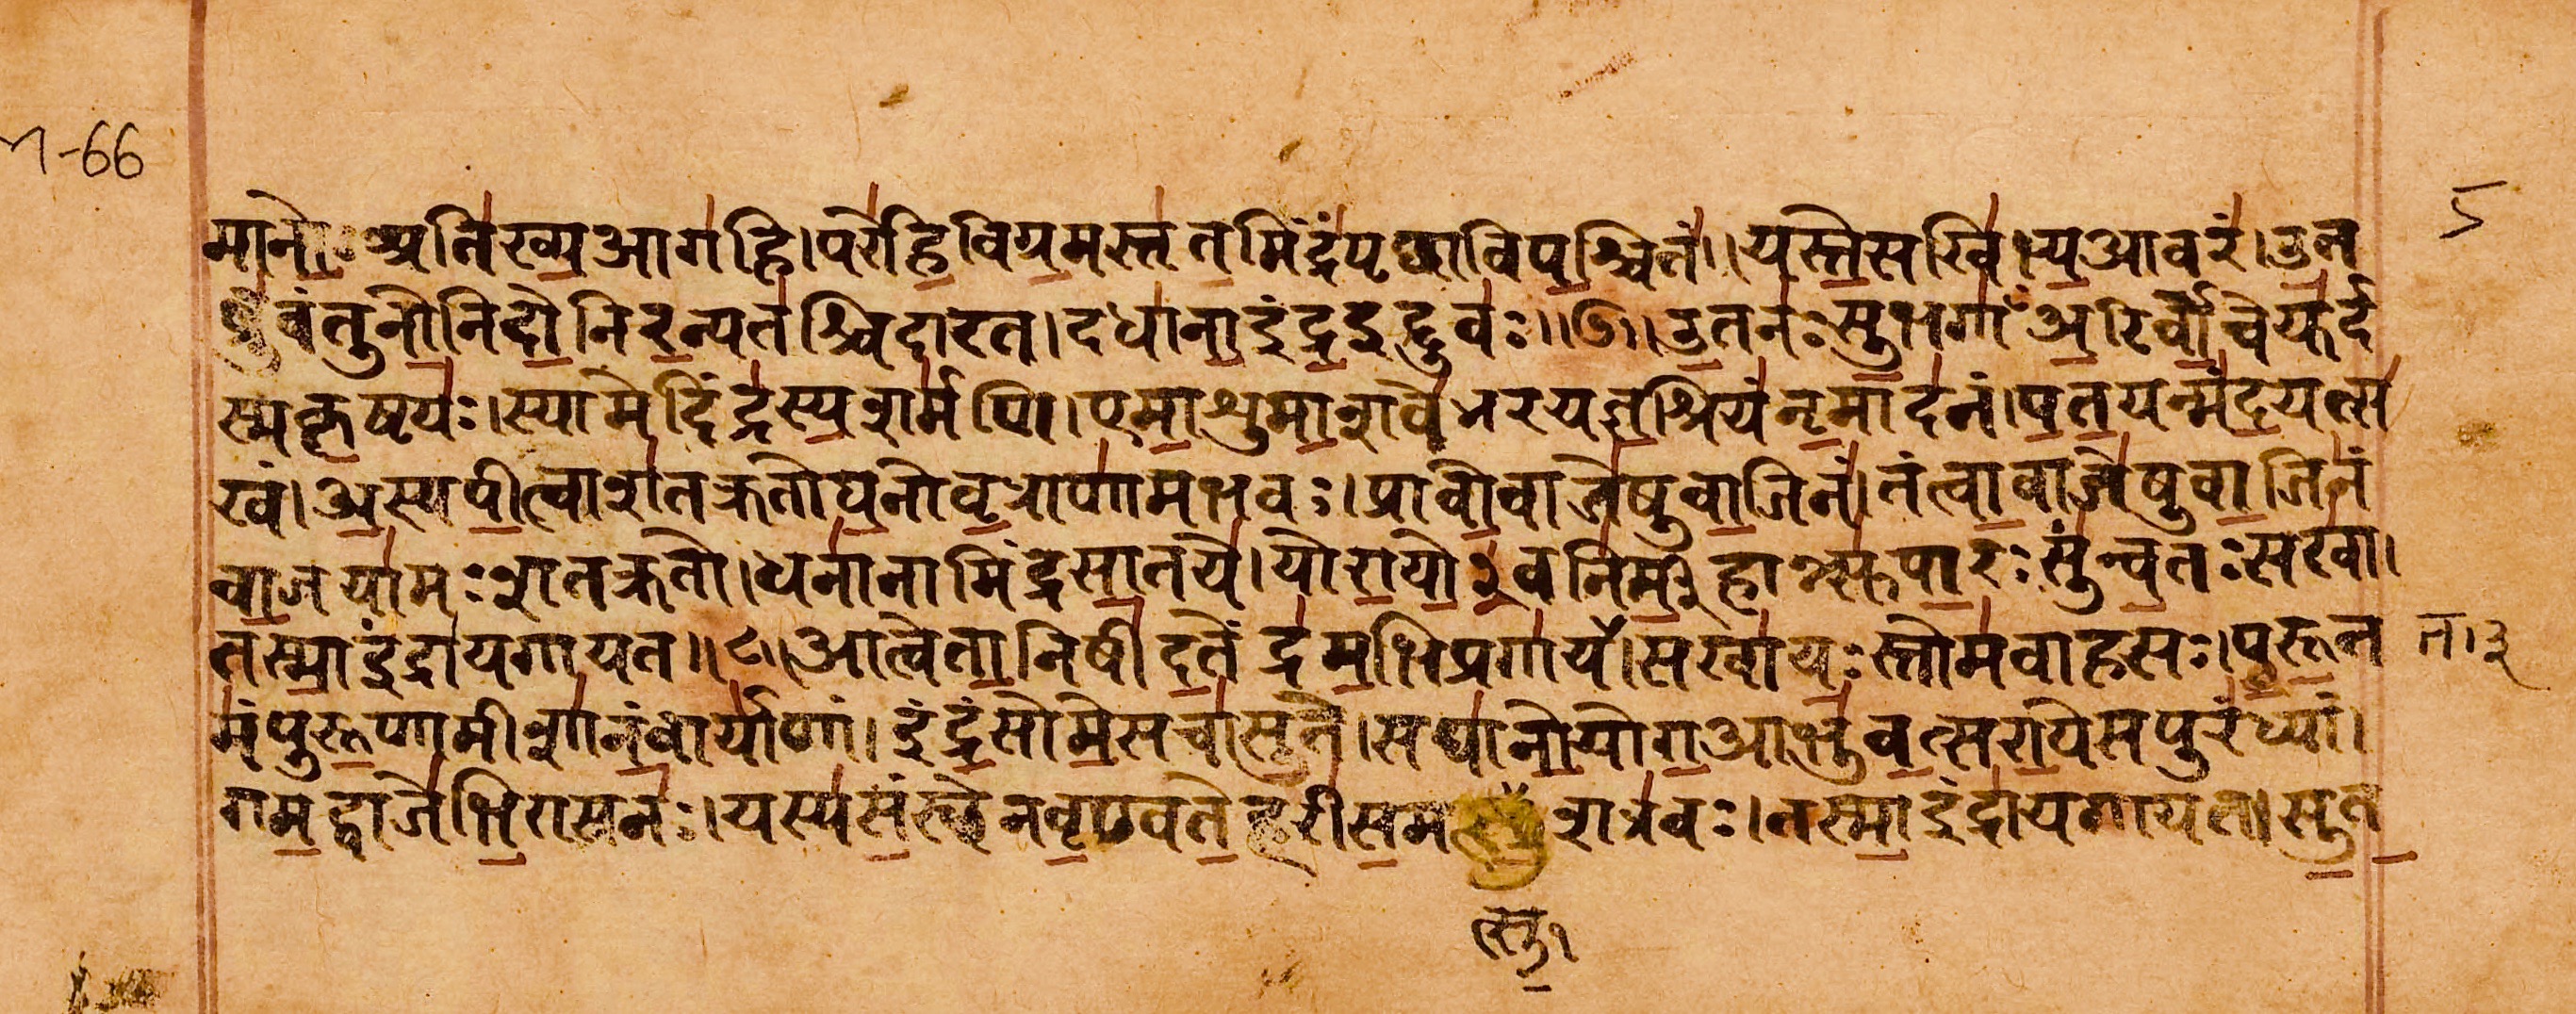 म-66
5
मानो॒ अति॑ख्य॒ आग॑हि । परे॑हि॒ विग्र॒मस्तृ॑त॒मिंद्रं॑ पृछा विप॒श्चितं॑ । यस्ते॒ सखि॑भ्य॒ आवरं॑ । उ॒त
ब्रु॑वंतु नो॒ निदो॒ निर॒न्यत॑श्चिदारत । दधा॑ना॒ इंद्र॒ इद्दुवः॑ ॥७॥ उ॒त नः॑ सु॒भगाँ॑ अ॒रिर्वो॒चेयु॑र्द
स्म कृ॒ष्टयः॑ । स्यामेदिंद्र॑स्य॒ शर्म॑णि । एमा॒शुमा॒शवे॑ भर यज्ञ॒श्रियं॑ नृ॒माद॑नं । प॒त॒यन्मं॑द॒यत्स
खं॑ । अ॒स्य पी॒त्वा श॑तक्रतो घ॒नो वृ॒त्राणा॑मभवः । प्रावो॒ वाजे॑षु वा॒जिनं॑ । तं त्वा॒ वाजे॑षु वा॒जिनं॑
वा॒जया॑मः शतक्रतो । धना॑नामिंद्र सा॒तये॑ । यो रा॒यो॒३॒॑वनि॑र्म॒हान्सु॑पा॒रः सु॑न्व॒तः सखा॑ ।
तस्मा॒ इंद्रा॑य गायत ॥८॥ आत्वेता॒ निषी॑द॒तेंद्र॑म॒भि प्रगा॑य । सखा॑यः॒ स्तोम॑वाहसः । पु॒रू॒त
त । ३
मं॑ पुरू॒णामीशा॑नं॒ वार्या॑णां । इंद्रं॒ सोमे॒ सचा॑ सु॒ते । स घा॑ नो॒ योग॒ आभु॑व॒त्स रा॒ये स पुरं॑ध्यां ।
गम॒द्वाजे॑भि॒रा स नः॑ । यस्य॑ सं॒स्थे न वृ॒ण्वते॒ हरी॑ स॒मत्सु॒ शत्र॑वः । तस्मा॒ इंद्रा॑य गायत । सु॒त॒
त्सु॒ १